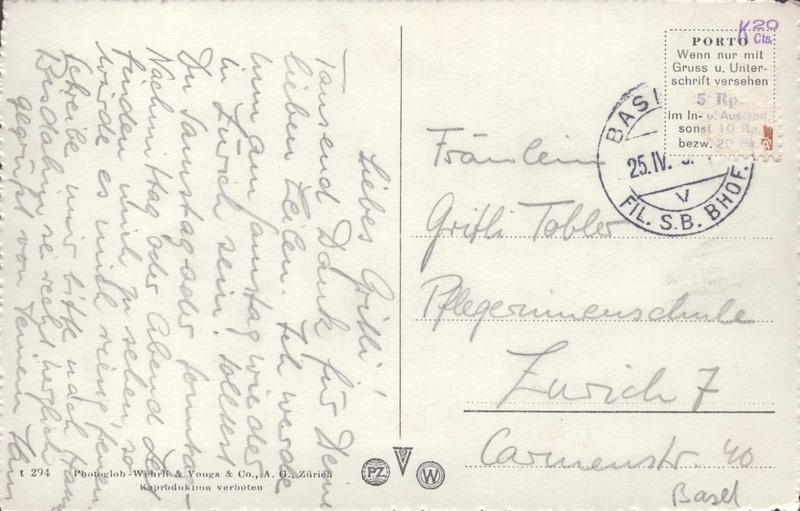 Liebes Gritli!
Tausend Dank für Deine
lieben Zeilen. Ich werde
nun am Samstag wieder
in Zürich sein. Solltest
Du Samstag oder Sonntag-
Nachmittag oder Abend
finden mich zu sehen, so
würde es mich riesig freuen.
Schreibe mir bitte nach
Bis dahin sei recht herzlich
gegrüsst von Deinem Hans
K 20
Cts.
PORTO
Wenn nur mit
Gruss u. Unter-
schrift versehen
5 Rp.
Im In- u. Ausland
sonst 10 Rp.
bezw. 20 Rp.
BASEL
25.IV.
V
FIL. S.B. BHOF.
Fräulein
Gritli Tobler
Pflegerinnenschule
Zürich 7
Carmenstr. 40
Basel
t 294 Photoglob-Wehrli & Vouga & Co., A. G., Zürich
Reproduktion verboten
PZ V W